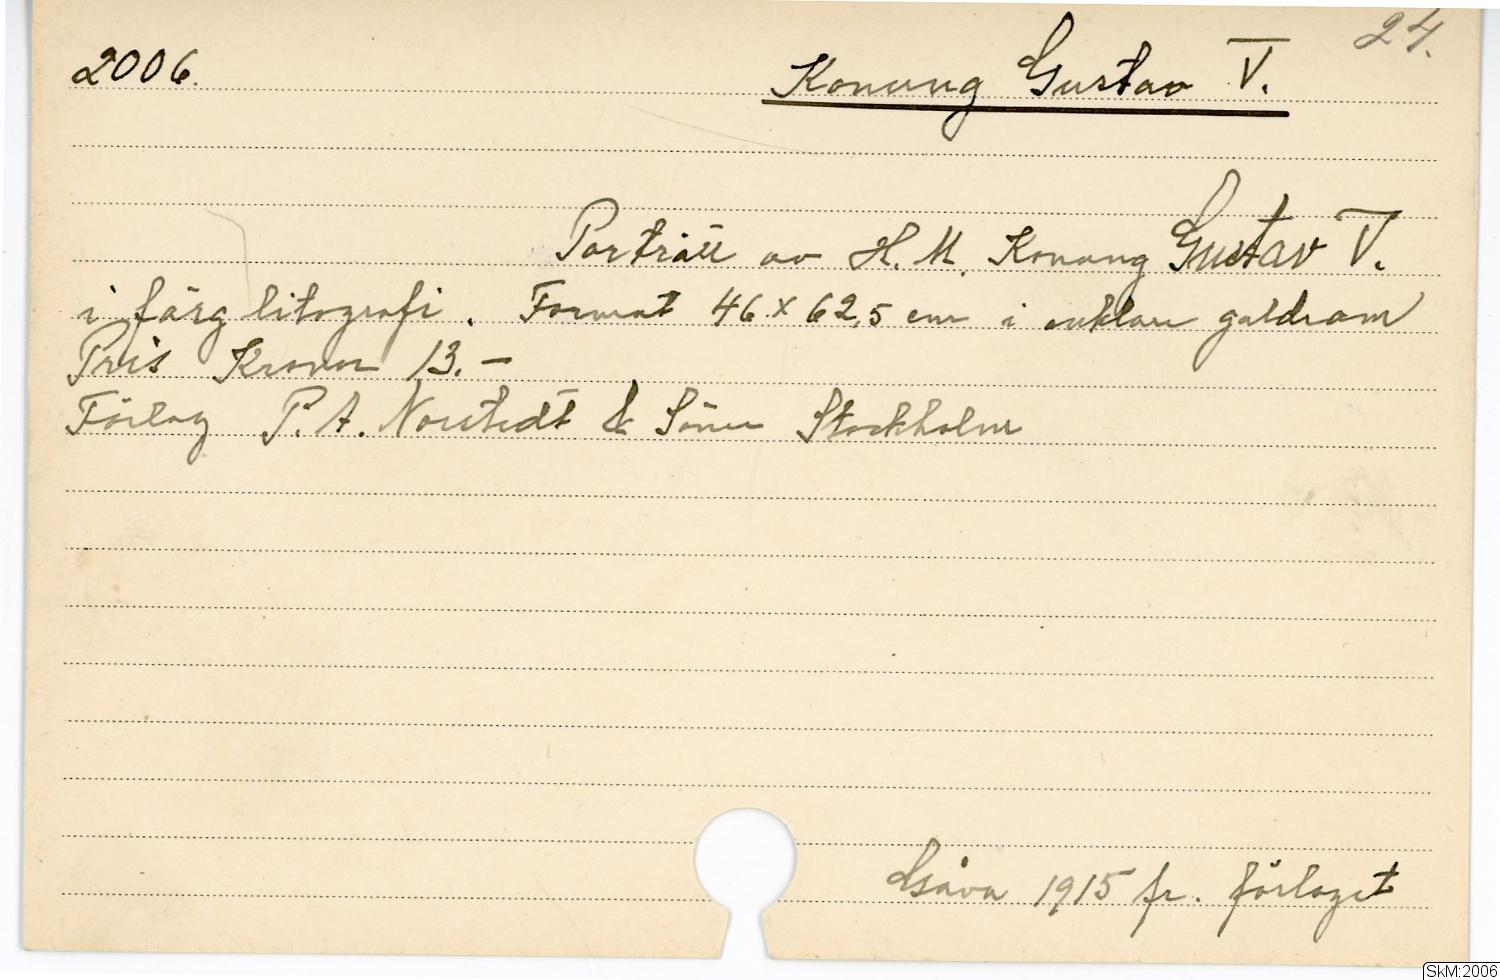 24.
2006. Konung Gustav V.
Porträtt av H. M. Konung Gustav V.
i färglitografi. Format 46 x 62,5 cm i enklare guldram
Pris Kronor 13.-
Förlag P. A. Norstedt & Söner Stockholm
Gåva 1915 fr. förlaget
SkM:2006